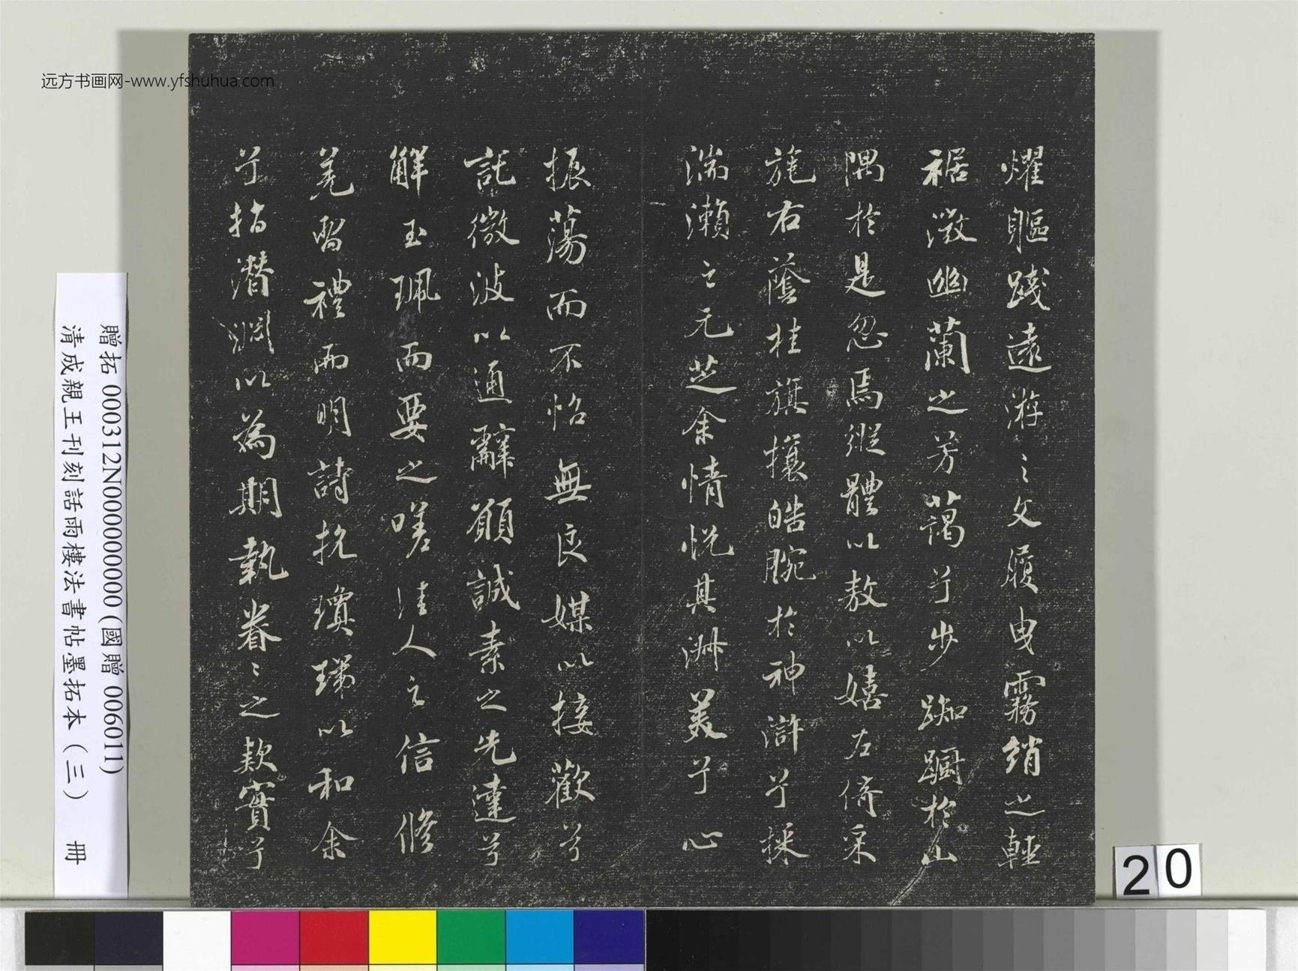 燿軀踐遠遊之文履曳霧綃之輕
裾微幽蘭之芳藹兮步踟躕於山
隅於是忽焉縱體以敖以嬉左倚采
旄右蔭桂旗攘皓腕於神滸兮採
湍瀨之元芝余情悅其淑美兮心
振蕩而不怡無良媒以接歡兮
託微波以通辭願誠素之先達兮
解玉珮而要之嗟佳人之信脩
羌習禮而明詩抗瓊珶以和余
兮指潛淵以為期執眷〻之款實兮
远方书画网-www.yfshuhua.com
贈拓 000312N000000000 (國贈 006011)
清成親王刊刻詒雨樓法書帖墨拓本(三) 冊
20